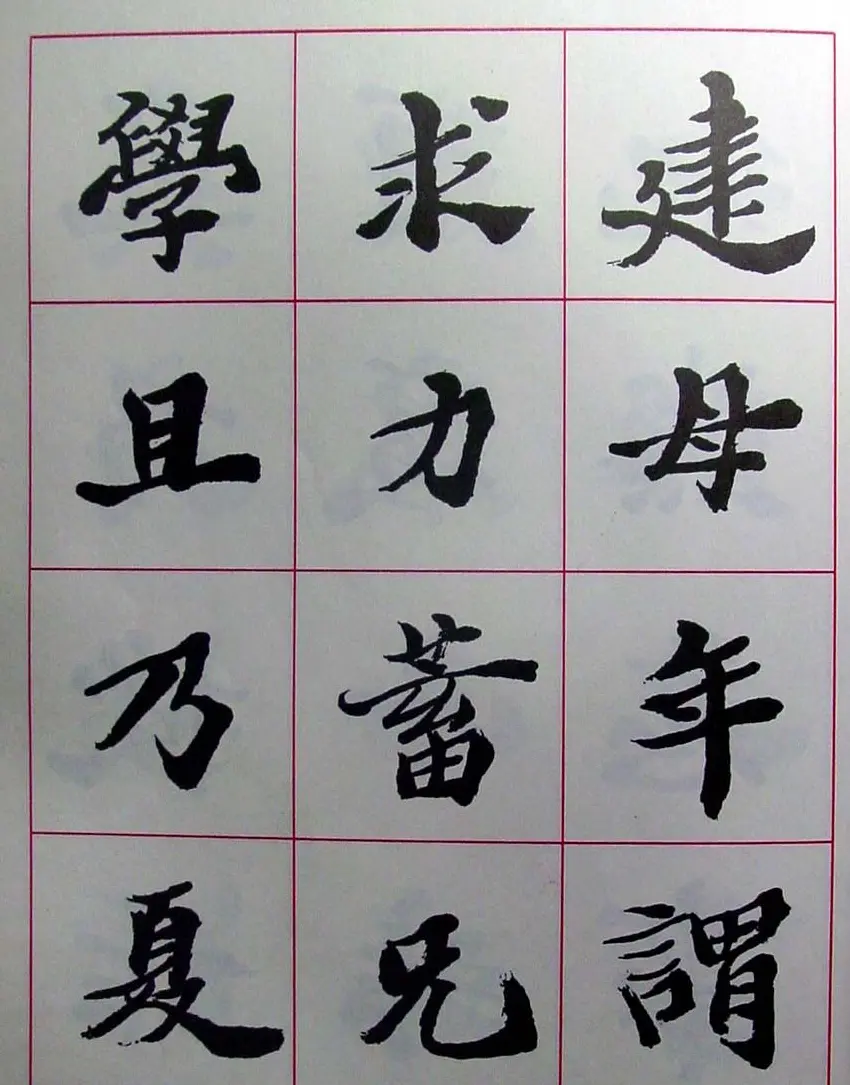 建母年謂
求力蓄兄
學且乃夏